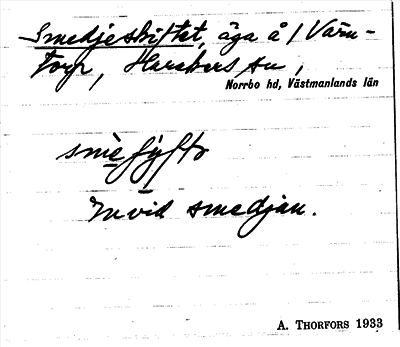 Smedjeskiftet, äga å 1 Värn-
torp, Harakers sn,
Norrbo hd, Västmanlands län
In vid smedjan.
A. THORFORS 1933